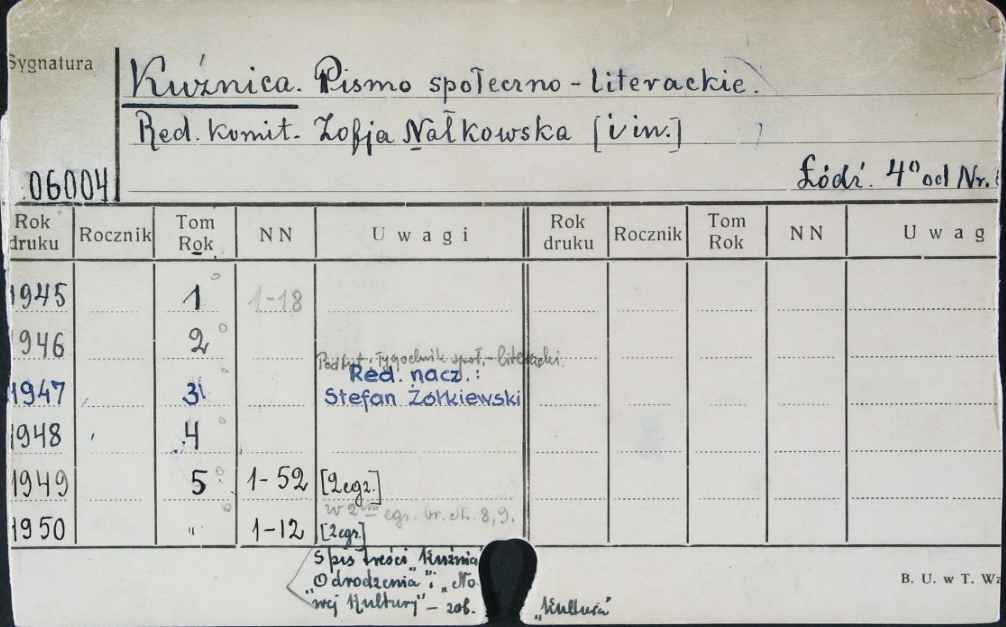 Sygnatura
Kuźnica. Pismo społeczno-literackie.
Red. komit. Zofja Nałkowska [i in.]
06004
Łódź. 4° od Nr.
Rok druku Rocznik Tom Rok NN Uwagi Rok druku Rocznik Tom Rok NN Uwag
1945 1 1-18
1946 2
Podtyt.: Tygodnik społ.-literacki.
Red. nacz.:
1947 3 Stefan Żółkiewski
1948 4
1949 5 1-52 [2egz.]
w 2im egz. br. nr. 8, 9.
1950 " 1-12 [2egz.]
Spis treści „Kuźnica
„Odrodzenia" i „No
wej Kultury" – zob. „Kultura"
B. U. w T. Wz